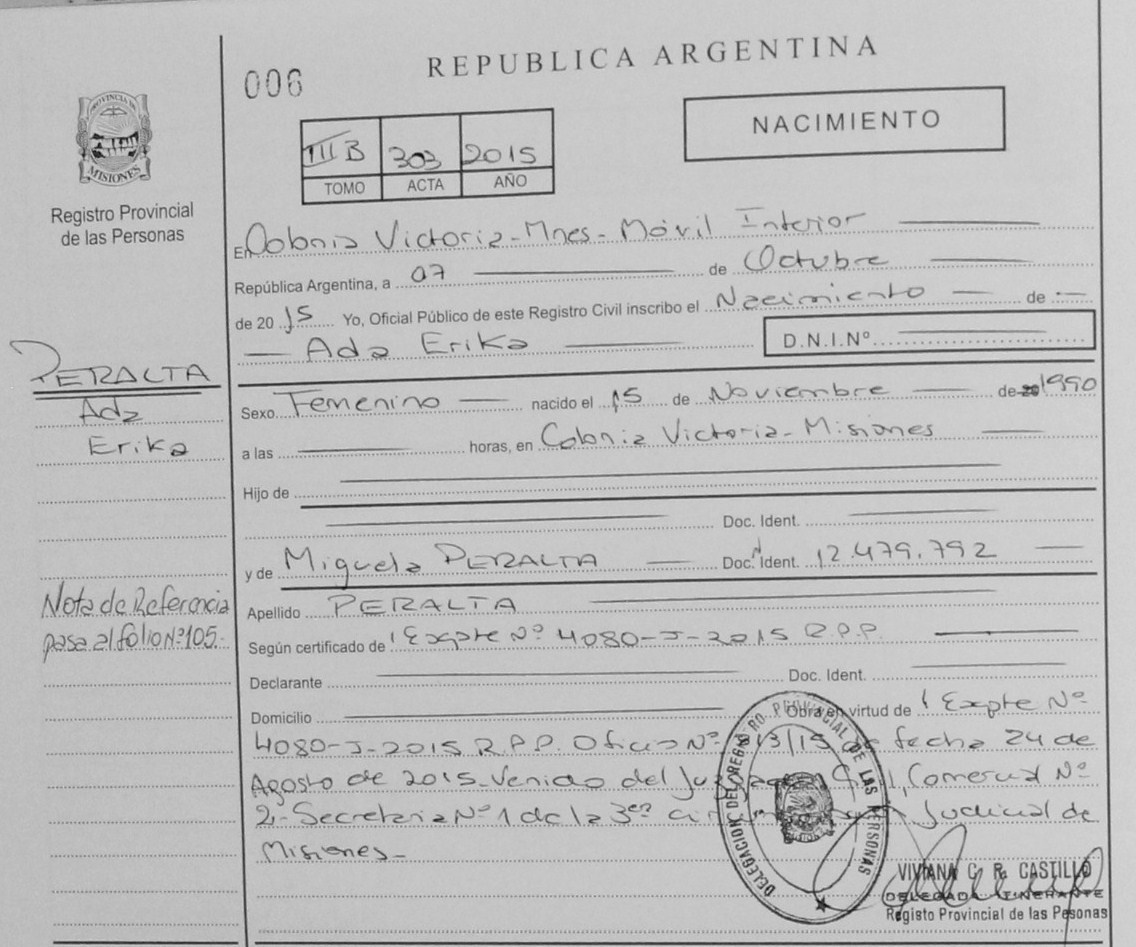 REPUBLICA ARGENTINA
006
NACIMIENTO
III B 303 2015
TOMO ACTA AÑO
PROVINCIA DE
MISIONES
Registro Provincial
de las Personas
En Colonia Victoria - Mnes - Móvil Interior
República Argentina, a 07 de Octubre
de 2015 Yo, Oficial Público de este Registro Civil inscribo el Nacimiento de
Ada Erika D.N.I.Nº
PERALTA
Ada
Erika
Sexo Femenino nacido el 15 de Noviembre de 20 1990
a las horas, en Colonia Victoria - Misiones
Hijo de
Doc. Ident.
y de Miguela PERALTA Doc. Ident. 12.479.792
Nota de Referencia
pasa al folio Nº 105.-
Apellido PERALTA
Según certificado de Expte Nº 4080-J-2015 R.P.P.
Declarante Doc. Ident.
Domicilio Obra en virtud de Expte Nº
4080-J-2015 R.P.P. Oficio Nº 13/15 de fecha 24 de
Agosto de 2015 - Venido del Civil, Comercial Nº
2 - Secretaria Nº 1 de la 3era Judicial de
Misiones -
DELEGACION DEL REGISTRO PROVINCIAL DE LAS PERSONAS
VIVIANA C. R. CASTILLO
DELEGADA ITINERANTE
Registo Provincial de las Pesonas